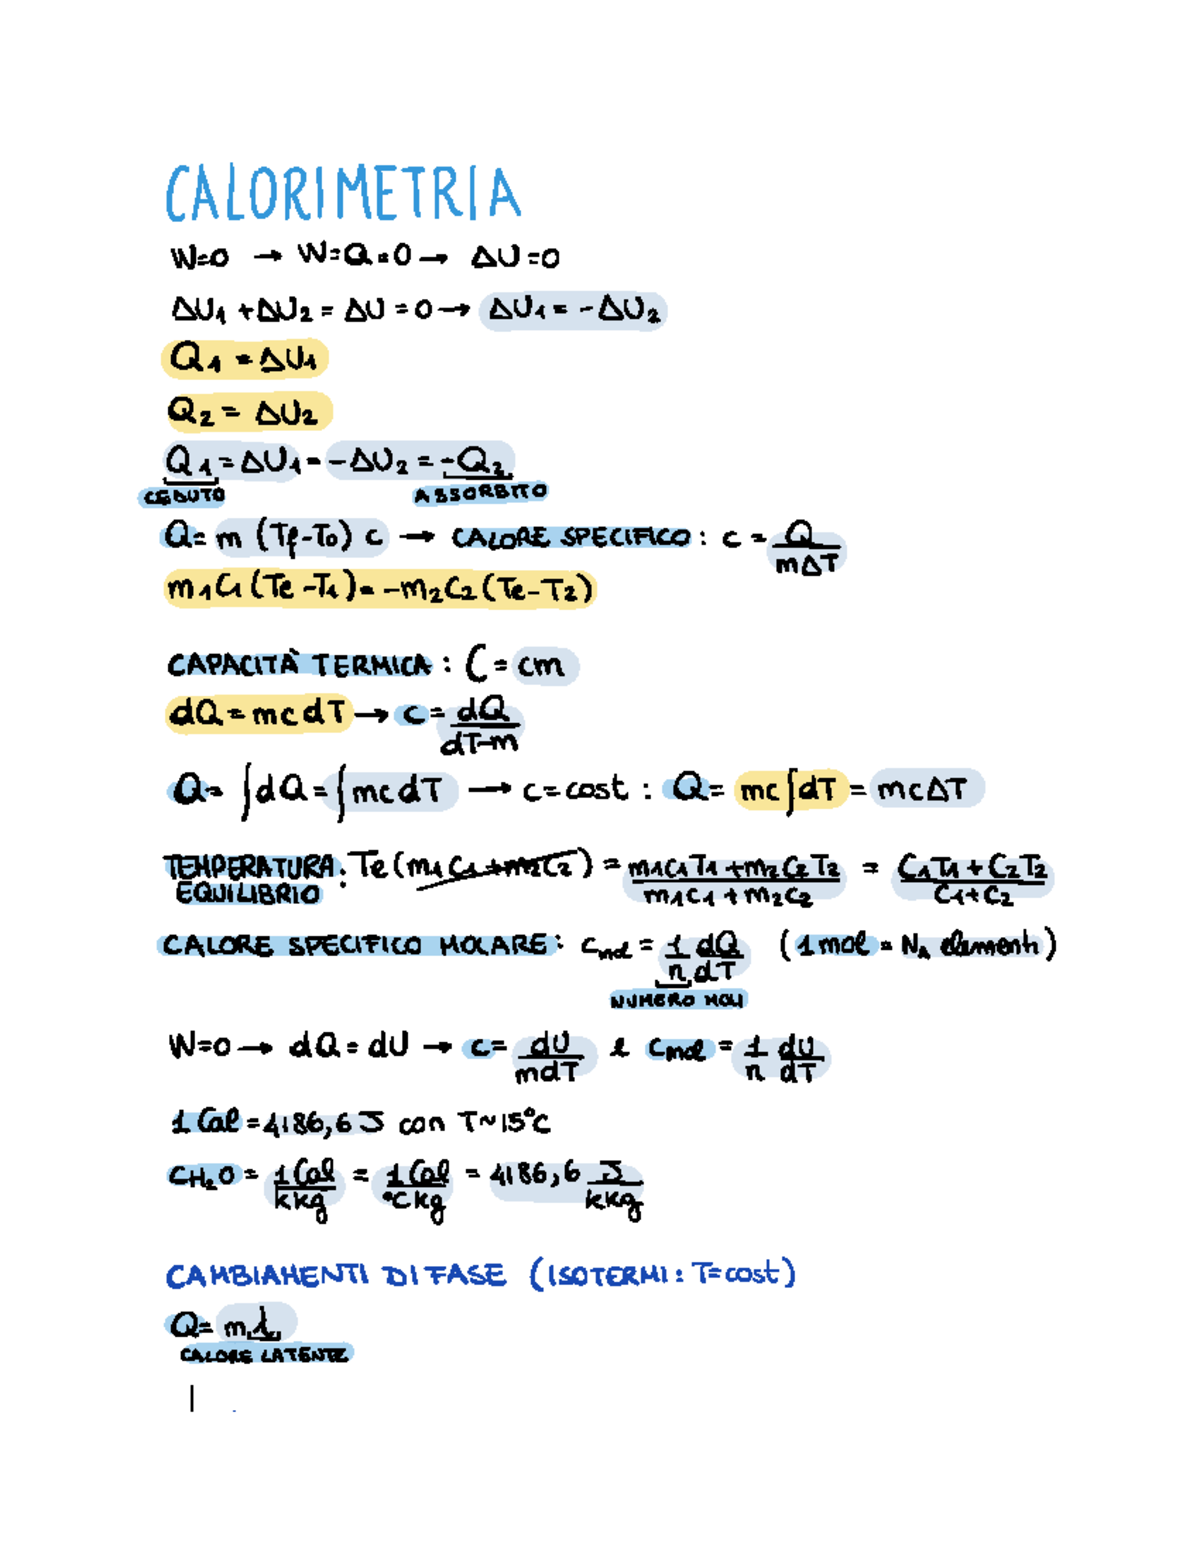 CALORIMETRIA
W=0 → W=Q=0 → ΔU=0
ΔU₁ + ΔU₂ = ΔU = 0 → ΔU₁ = -ΔU₂
Q₁ = ΔU₁
Q₂ = ΔU₂
Q₁ = ΔU₁ = -ΔU₂ = -Q₂
CEDUTO ASSORBITO
Q = m (Tf-T₀) c → CALORE SPECIFICO : c = Q/mΔT
m₁C₁(Te-T₁) = -m₂C₂(Te-T₂)
CAPACITÀ TERMICA : C = cm
dQ = mcdT → c = dQ/dT-m
Q = ∫dQ = ∫mcdT → c=cost : Q = mc∫dT = mcΔT
TEMPERATURA EQUILIBRIO : Te(m₁C₁+m₂C₂) = m₁C₁T₁+m₂C₂T₂/m₁C₁+m₂C₂ = C₁T₁+C₂T₂/C₁+C₂
CALORE SPECIFICO MOLARE : Cmol = 1/n dQ/dT (1 mol = Nₐ elementi)
NUMERO MOLI
W=0 → dQ=dU → c = dU/mdT e Cmol = 1/n dU/dT
1 Cal = 4186,6 J con T~15°C
CH₂O = 1 Cal/kkg = 1 Cal/°Ckg = 4186,6 J/kkg
CAMBIAMENTI DI FASE (ISOTERMI : T=cost)
Q = mλ
CALORE LATENTE